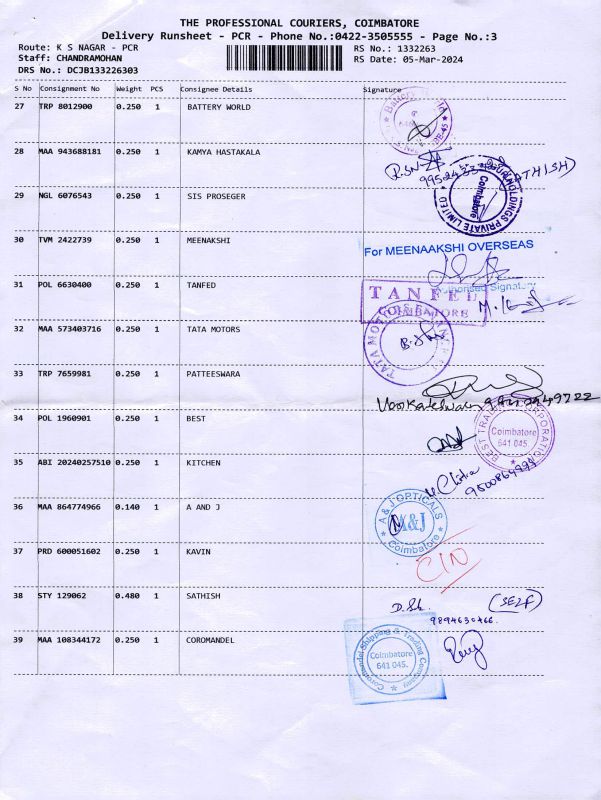 THE PROFESSIONAL COURIERS, COIMBATORE
Delivery Runsheet - PCR - Phone No.:0422-3505555 - Page No.:3
Route: K S NAGAR - PCR RS No.: 1332263
Staff: CHANDRAMOHAN RS Date: 05-Mar-2024
DRS No.: DCJB133226303
S No Consignment No Weight PCS Consignee Details Signature
27 TRP 8012900 0.250 1 BATTERY WORLD
28 MAA 943688181 0.250 1 KAMYA HASTAKALA
29 NGL 6076543 0.250 1 SIS PROSEGER
HOLDINGS PRIVATE LIMITED
Coimbatore
30 TVM 2422739 0.250 1 MEENAKSHI
For MEENAAKSHI OVERSEAS
Authorised Signatory
31 POL 6630400 0.250 1 TANFED
TANFED
COIMBATORE
32 MAA 573403716 0.250 1 TATA MOTORS
TATA MOTORS
33 TRP 7659981 0.250 1 PATTEESWARA
34 POL 1960901 0.250 1 BEST
BEST TRADING CORPORATION
Coimbatore
641 045.
35 ABI 20240257510 0.250 1 KITCHEN
36 MAA 864774966 0.140 1 A AND J
A & J OPTICALS
Coimbatore
37 PRD 600051602 0.250 1 KAVIN
CIN
38 STY 129062 0.480 1 SATHISH
(SELF)
9894630466.
39 MAA 108344172 0.250 1 COROMANDEL
Coromandel Shipping & Trading Company
Coimbatore
641 045.